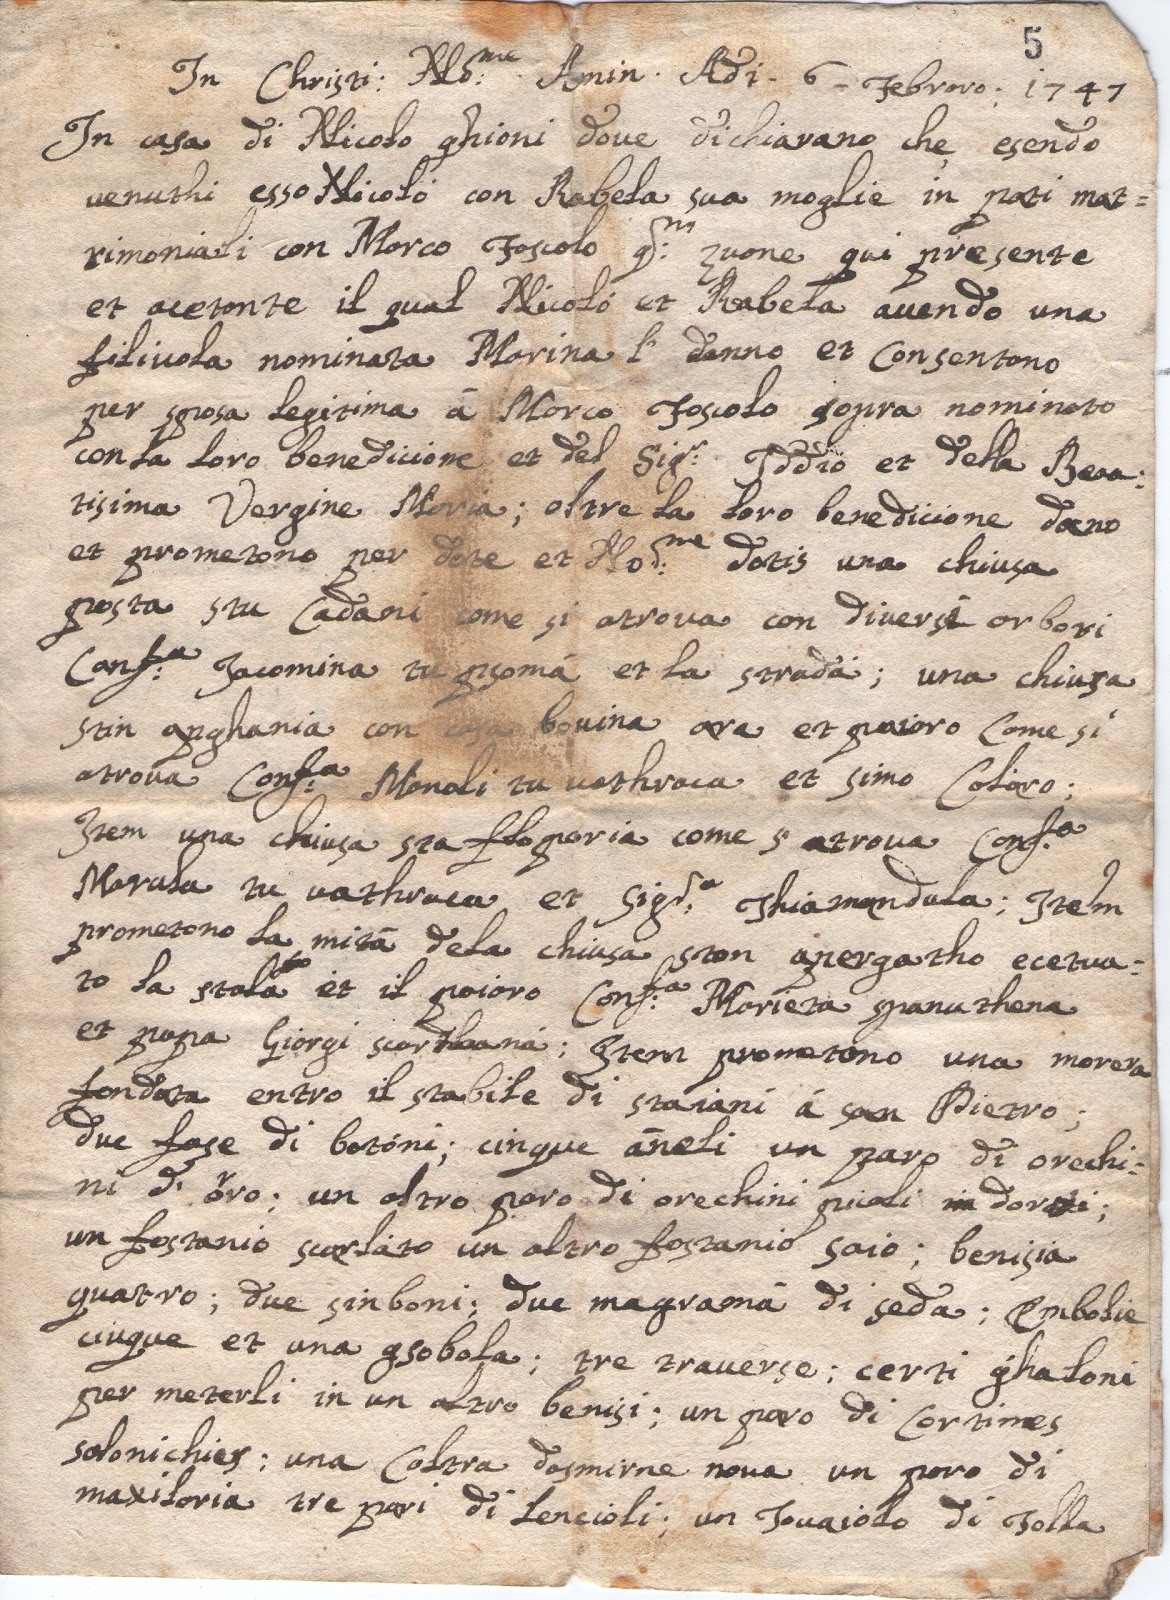 5
In Christi: No:me Amin. Adi. 6 - Febraro; 1747
In casa di Nicolo ghioni dove dichiarano che, esendo
venuthi esso Nicoló con Rabela sua moglie in pati mat=
rimoniali con Marco Foscolo q:m zuane qui presente
et acetante il qual Nicoló et Rabela avendo una
filivola nominata Marina l' danno et Consentono
per sposa legitima á Marco Foscolo sopra nominato
con la loro benedicione et del Sigr: Iddio et della Bea:
tisima Vergine Maria; oltre la loro benedicione dano
et prometono per dote et No:me dotis una chiusa
posta stu Cadani come si atrova con diversi arbori
Conf:a Jacomina tu psomá et la strada; una chiusa
stin anghania con casa bovina ara et paioro Come si
atrova Conf:a Manoli tu vathraca et simo Colaro;
Item una chiusa sta flogaria come s' atrova Conf:a
Marula tu vathraca et Sigr:a Thiamandula; Item
prometono la mitá dela chiusa ston apergatho ecetua=
to la stala et il paioro Conf:a Marieta spanuthena
et papa Giorgi scordhaná; Item prometono una morera
fondata entro il stabile di staiani á san Pietro;
due fase di botóni; cinque áneli un paro di orechi=
ni d' oro; un altro paro di orechini picoli in dorati;
un fostanió scarláto un altro fostanió saio; benisia
quatro; due sinboni; due magramá di seda; Embolie
cinque et una psobola; tre traverse; certi ghaloni
per meterli in un altro benisi; un paro di Cortines
salonichies; una Coltra dasmirne nova un paro di
maxilaria tre pari di lencioli; un Tovaiolo di Tolla